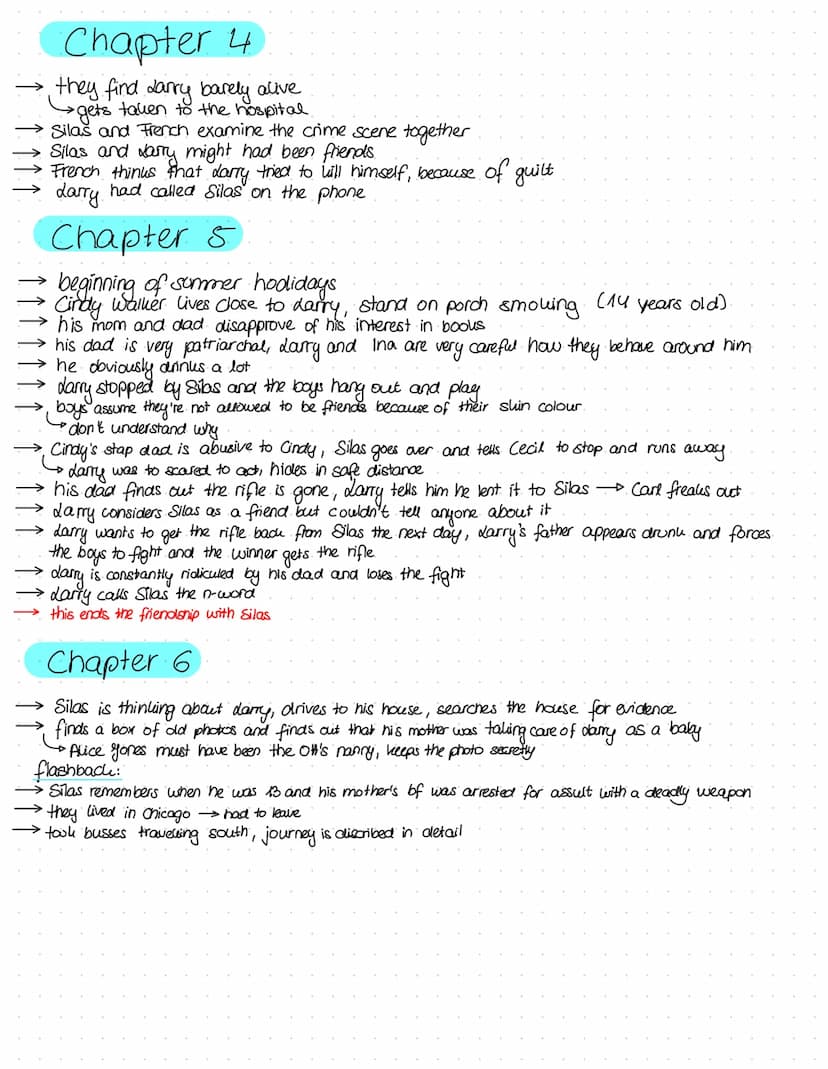 Chapter 4
→ they find Larry barely alive
↳ gets taken to the hospital
→ Silas and French examine the crime scene together
→ Silas and Larry might had been friends
→ French thinks that Larry tried to kill himself, because of guilt
→ Larry had called Silas on the phone
Chapter 5
→ beginning of summer hoolidays
→ Cindy Walker lives close to Larry, stand on porch smoking (14 years old)
→ his mom and dad disapprove of his interest in books
→ his dad is very patriarchal, Larry and Ina are very careful how they behave around him
→ he obviously drinks a lot
→ Larry stopped by Silas and the boys hang out and play
→ boys assume they're not allowed to be friends because of their skin colour
↳ don't understand why
→ Cindy's stap dad is abusive to Cindy, Silas goes over and tells Cecil to stop and runs away
↳ Larry was to scared to act, hides in safe distance
→ his dad finds out the rifle is gone, Larry tells him he lent it to Silas → Carl freaks out
→ Larry considers Silas as a friend but couldn't tell anyone about it
→ Larry wants to get the rifle back from Silas the next day, Larry's father appears drunk and forces
the boys to fight and the winner gets the rifle
→ Larry is constantly ridiculed by his dad and loses the fight
→ Larry calls Silas the n-word
→ this ends the friendship with Silas
Chapter 6
→ Silas is thinking about Larry, drives to his house, searches the house for evidence
→ finds a box of old photos and finds out that his mother was taking care of Larry as a baby
↳ Alice Jones must have been the Ott's nanny, keeps the photo secretly
flashback:
→ Silas remembers when he was 13 and his mother's bf was arrested for assult with a deadly weapon
→ they lived in Chicago → had to leave
→ took busses traveling south, journey is discribed in detail